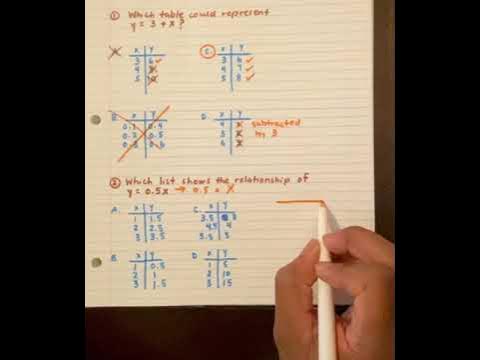 ① Which table could represent
y = 3 + x?
A. x y
3 6
4
5
C. x y
3 6
4 7
5 8
B. x y
0.1 0.4
0.2 0.5
0.3 0.6
D. x y
4 x subtracted
5 x by 3
6 x
② Which list shows the relationship of
y = 0.5x → 0.5 • x
A. x y
1 1.5
2 2.5
3 3.5
C. x y
3.5 3
4.5 4
5.5 5
B. x y
1 0.5
2 1
3 1.5
D. x y
1 5
2 10
3 15